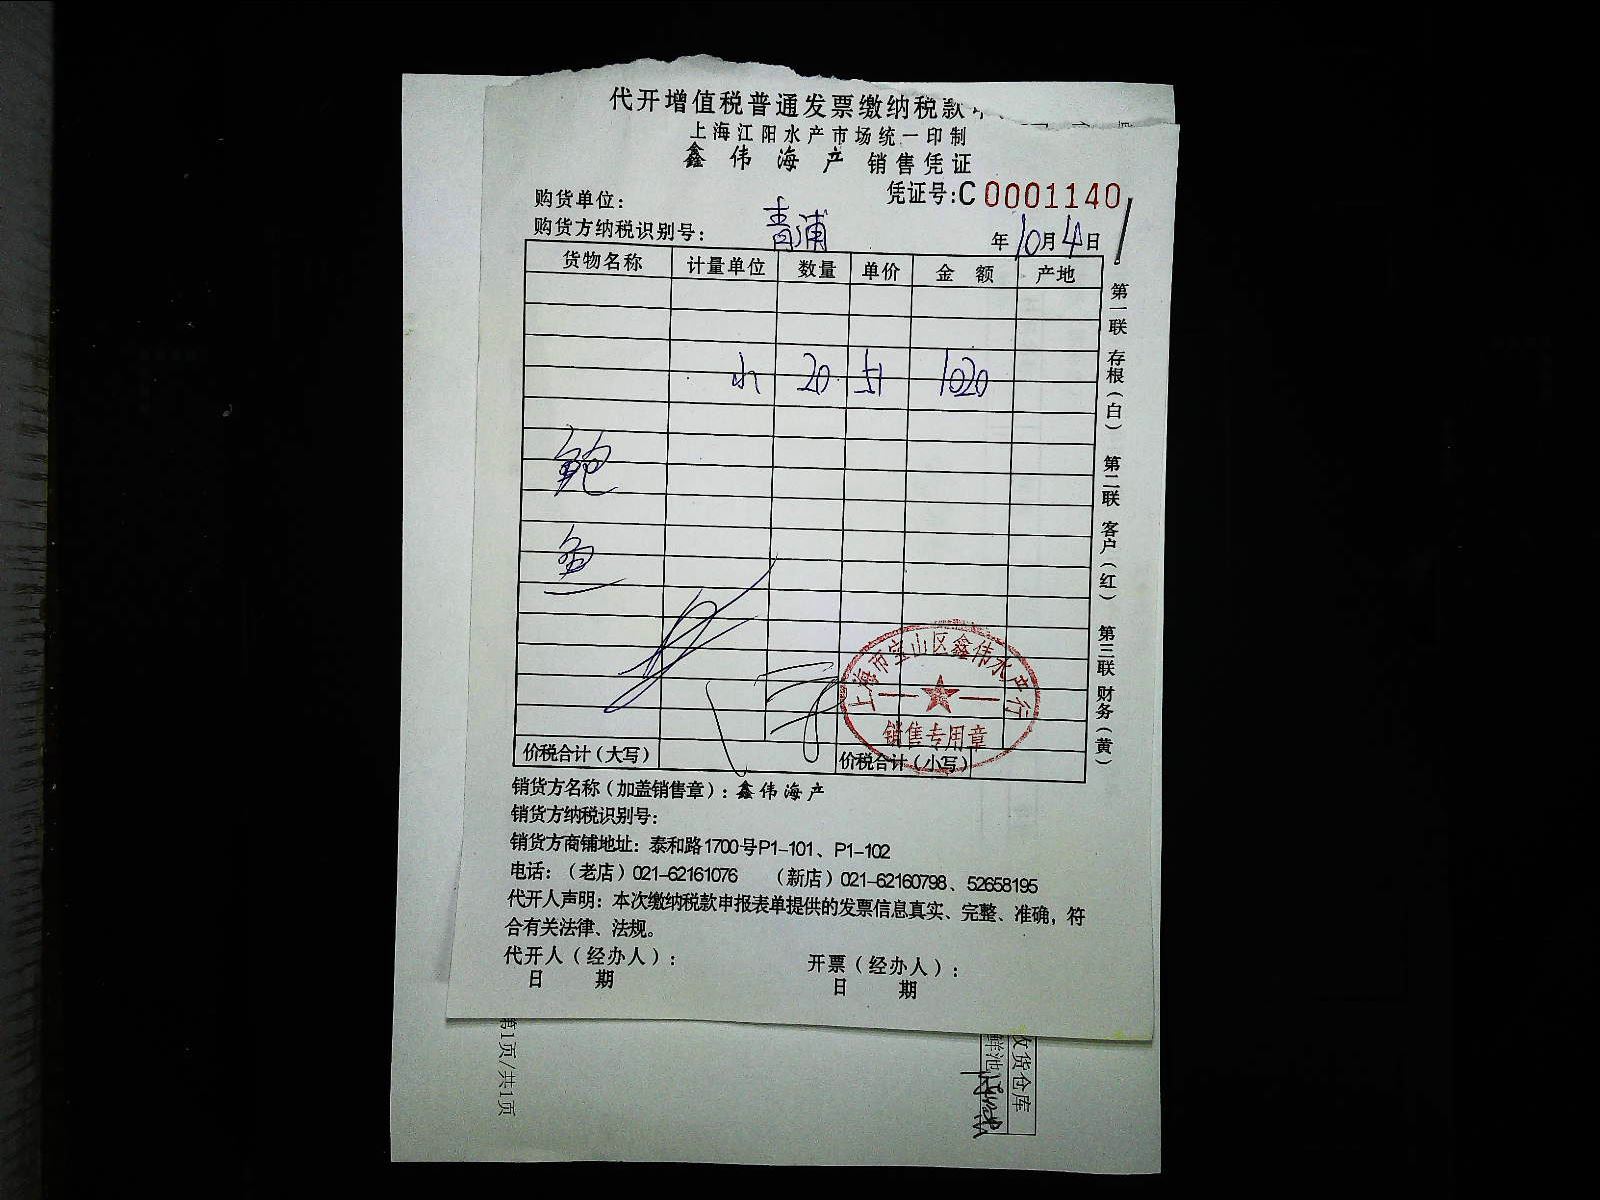 代开增值税普通发票缴纳税款
上海江阳水产市场统一印制
鑫伟海产 销售凭证
凭证号:C 0001140
购货单位：
购货方纳税识别号： 青浦 年10月4日
货物名称 计量单位 数量 单价 金 额 产地
20 51 1020
鲍
鱼
上海市宝山区鑫伟水产行
销售专用章
价税合计（大写） 价税合计（小写）
销货方名称（加盖销售章）：鑫伟海产
销货方纳税识别号：
销货方商铺地址：泰和路1700号P1-101、P1-102
电话：（老店）021-62161076 （新店）021-62160798、52658195
代开人声明：本次缴纳税款申报表单提供的发票信息真实、完整、准确，符
合有关法律、法规。
代开人（经办人）： 开票（经办人）：
日 期 日 期
第一联 存根（白） 第二联 客户（红） 第三联 财务（黄）
第1页/共1页
收货仓库
鲜池